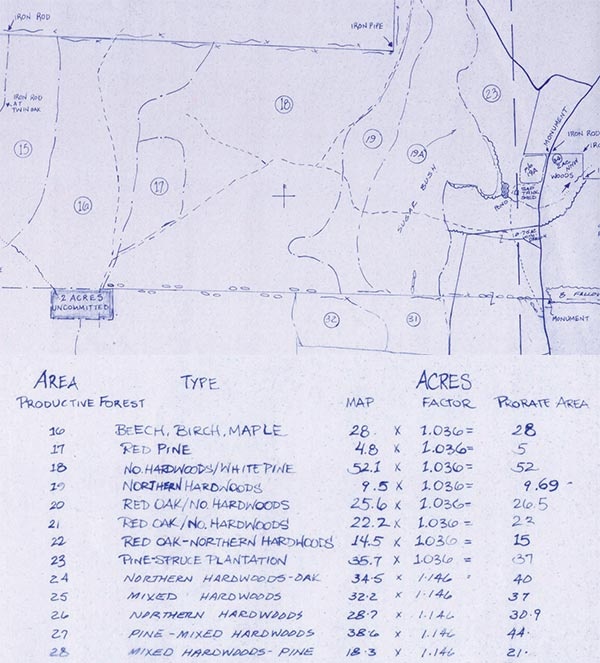 IRON ROD
IRON PIPE
IRON ROD
AT
TWIN OAK
15
16
17
18
19
19A
23
SUGAR BUSH
MONUMENT
IRON ROD
WOODS
POND
SAP
TANK
SHED
2 ACRES
UNCOMMITTED
32
31
B. FALLOW
MONUMENT
AREA TYPE ACRES
PRODUCTIVE FOREST MAP FACTOR PRORATE AREA
16 BEECH, BIRCH, MAPLE 28. X 1.036= 28
17 RED PINE 4.8 X 1.036= 5
18 NO. HARDWOODS/WHITE PINE 52.1 X 1.036= 52
19 NORTHERN HARDWOODS 9.5 X 1.036= 9.69
20 RED OAK/NO. HARDWOODS 25.6 X 1.036= 26.5
21 RED OAK/NO. HARDWOODS 22.2 X 1.036= 22
22 RED OAK-NORTHERN HARDWOODS 14.5 X 1.036= 15
23 PINE-SPRUCE PLANTATION 35.7 X 1.036= 37
24 NORTHERN HARDWOODS-OAK 34.5 X 1.146 40
25 MIXED HARDWOODS 32.2 X 1.146 37
26 NORTHERN HARDWOODS 28.7 X 1.146 30.9
27 PINE-MIXED HARDWOODS 38.6 X 1.146 44.
28 MIXED HARDWOODS-PINE 18.3 X 1.146 21.